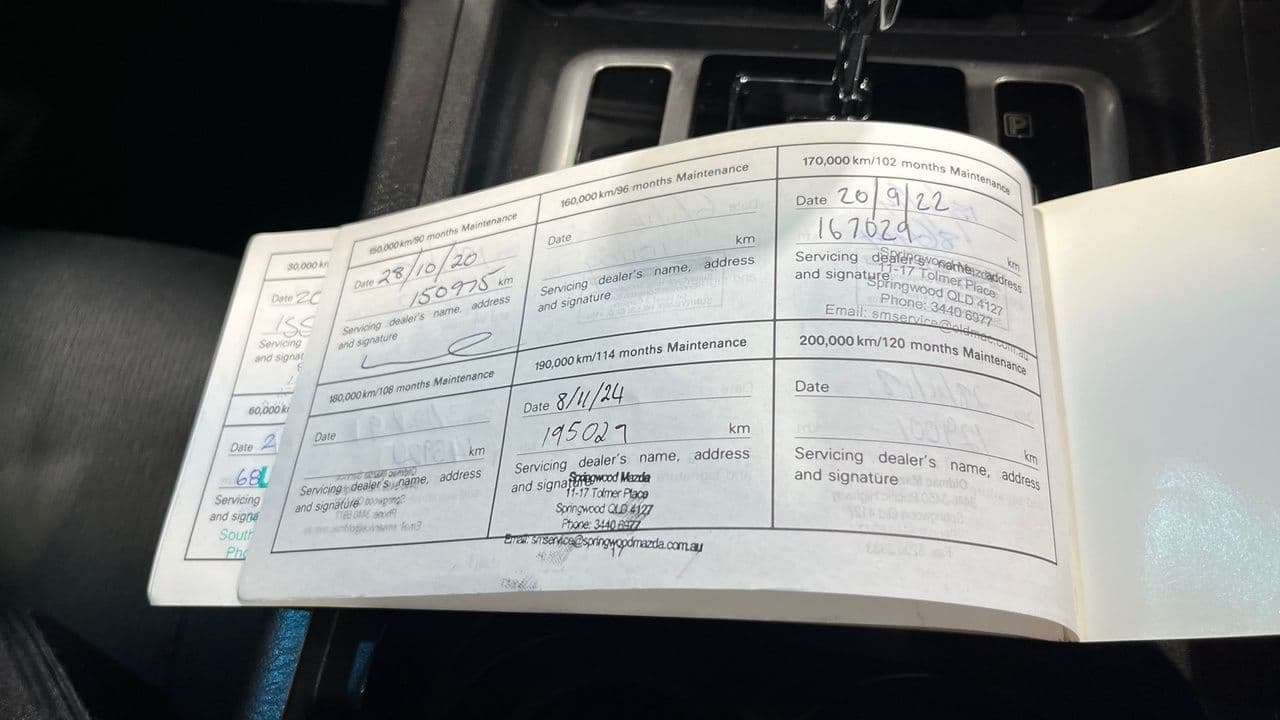 30,000 k
Date 20
155
Servicing
and signat
60,000 k
Date 2
68
Servicing
and signa
South
Pho
150,000 km/90 months Maintenance
Date 28/10/20
150975 km
Servicing dealer's name, address
and signature
160,000 km/96 months Maintenance
Date
km
Servicing dealer's name, address
and signature
170,000 km/102 months Maintenance
Date 20/9/22
167029
km
Servicing dealer's name, address
and signature
Springwood Mazda
11-17 Tolmer Place
Springwood QLD 4127
Phone: 3440 6977
Email: smservice@oldmac.com.au
180,000 km/108 months Maintenance
Date
km
Servicing dealer's name, address
and signature
190,000 km/114 months Maintenance
Date 8/11/24
195027 km
Servicing dealer's name, address
and signature
Springwood Mazda
11-17 Tolmer Place
Springwood QLD 4127
Phone: 3440 6977
Email: smservice@springwoodmazda.com.au
200,000 km/120 months Maintenance
Date
km
Servicing dealer's name, address
and signature
P